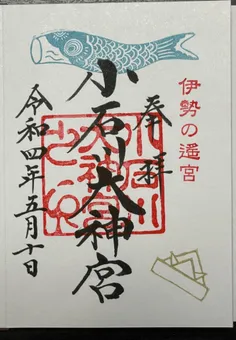 伊勢の遥宮
奉拝
小石川大神宮
令和四年五月十日